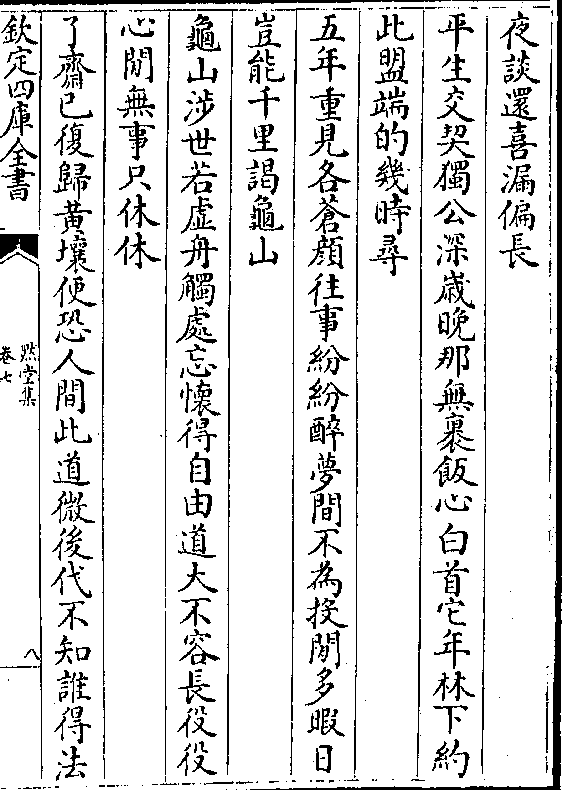 夜談還喜漏偏長
平生交契獨公深歳晩那無裹飯心白首它年林下約
此盟端的幾時尋
五年重見各蒼顔往事紛紛醉夢間不為投閒多暇日
豈能千里謁龜山
龜山涉世若虚舟觸處忘懷得自由道大不容長役役
心閒無事只休休
了齋已復歸黄壤便恐人間此道微後代不知誰得法
欽定四庫全書
黙堂集
卷七
八